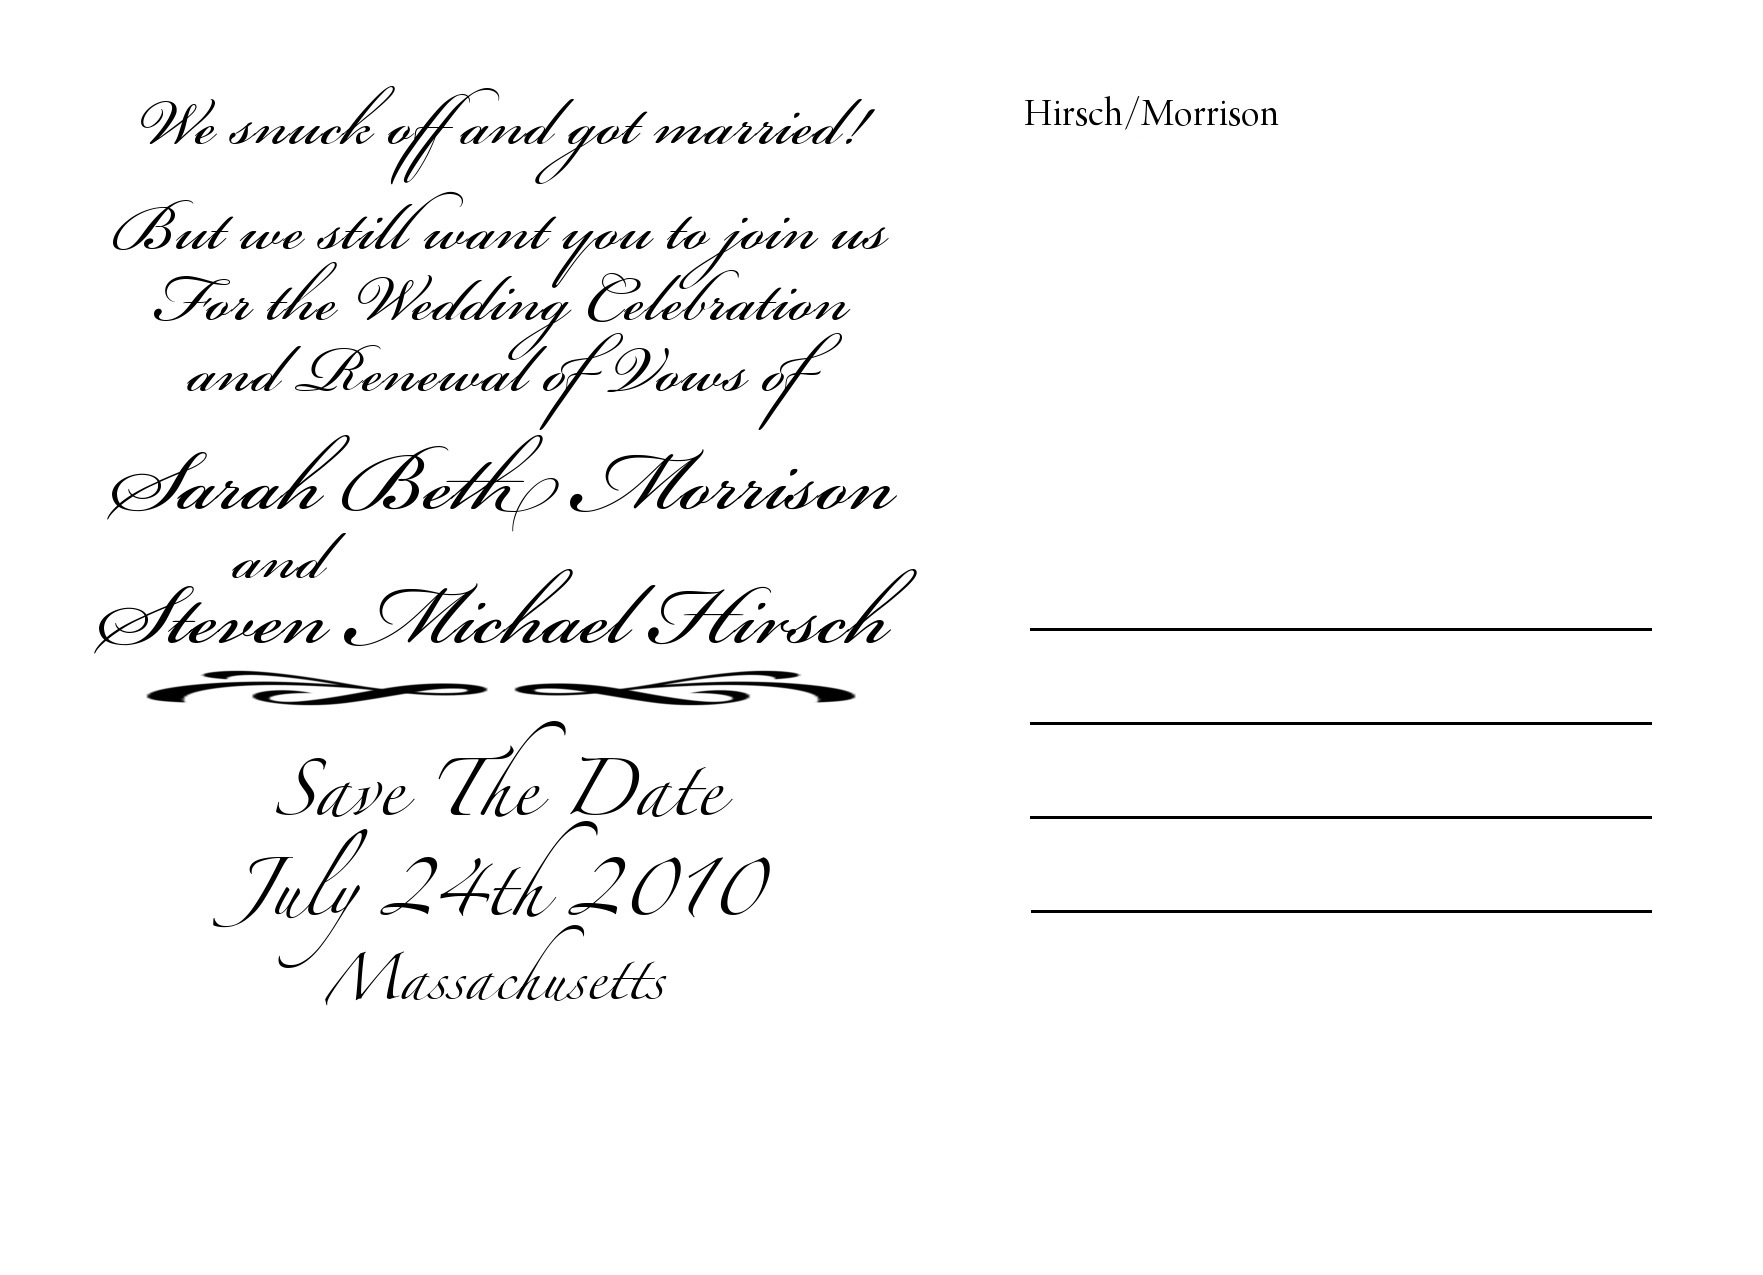 We snuck off and got married!
But we still want you to join us
For the Wedding Celebration
and Renewal of Vows of
Sarah Beth Morrison
and
Steven Michael Hirsch
Save The Date
July 24th 2010
Massachusetts
Hirsch/Morrison